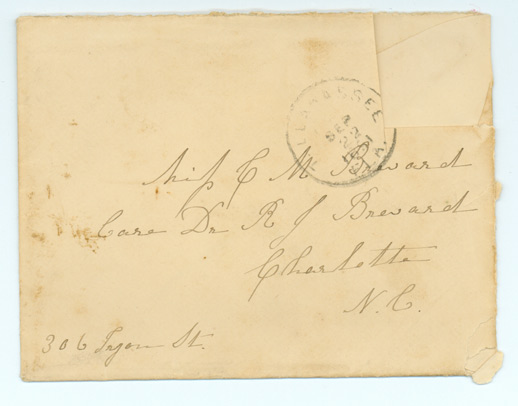 TALLAHASSEE
FLA.
Miss C M Brevard
Care Dr R J Brevard
Charlotte
N.C.
306 Tryon St.